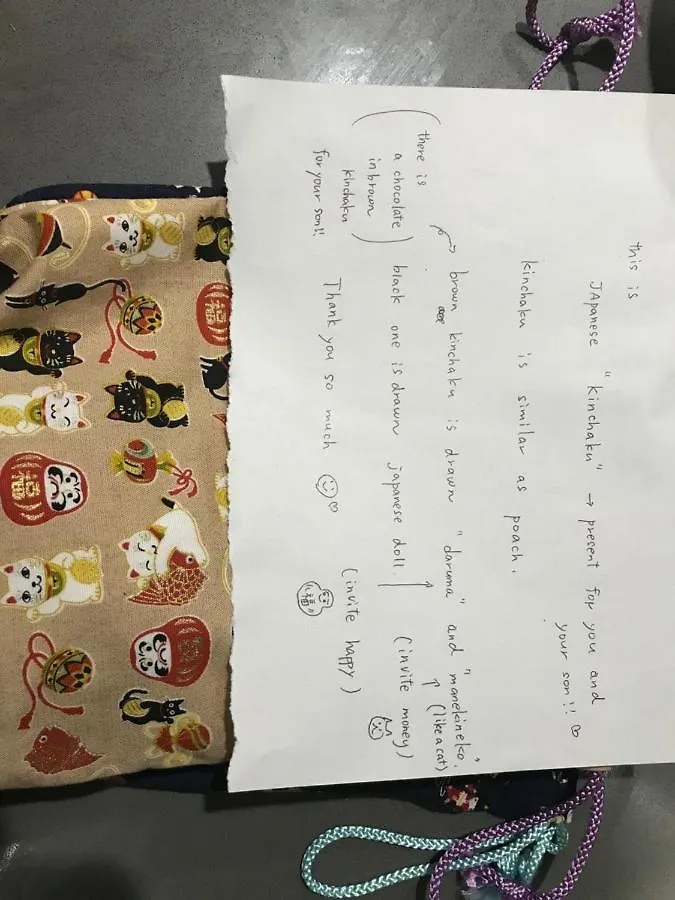 this is
JApanese "kinchaku" → present for you and
your son!! ♡
kinchaku is similar as poach.
brown kinchaku is drawn "daruma" and "manekineko."
↑ (like a cat)
black one is drawn japanese doll.
↑ (invite money)
(invite happy)
福
(there is
a chocolate
in brown
kinchaku)
for your son!!
Thank you so much ☺♡
福
福